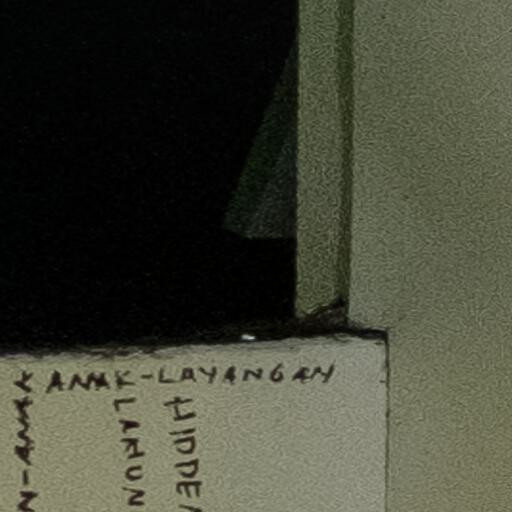 ANAK-LAYANGAN
N-ANAK
LAKUN
HIDDEN